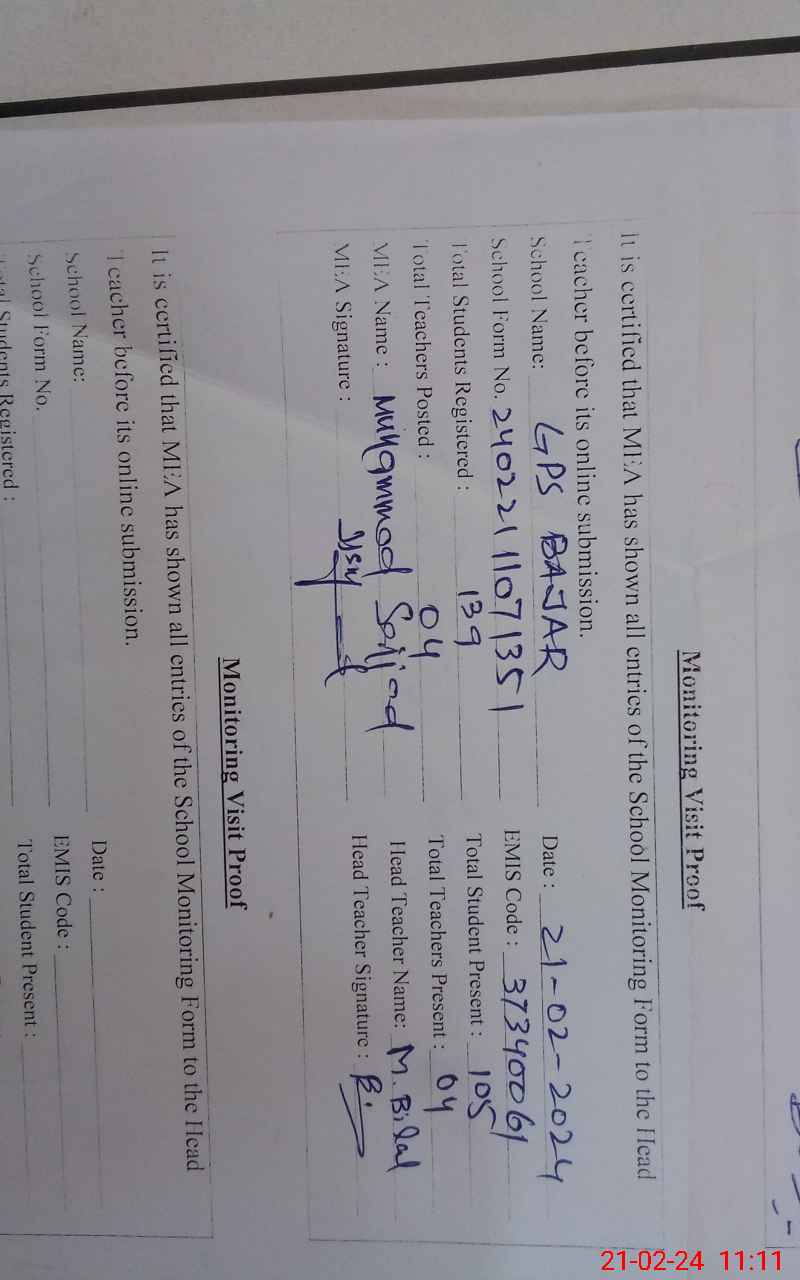 Monitoring Visit Proof
It is certified that MEA has shown all entries of the School Monitoring Form to the Head
Teacher before its online submission.
School Name: GPS BAJAR Date : 21-02-2024
School Form No. 24022111071351 EMIS Code : 37340061
Total Students Registered : 139 Total Student Present : 105
Total Teachers Posted : 04 Total Teachers Present : 04
MEA Name : Muhammad Sajjad Head Teacher Name: M. Bilal
MEA Signature : Head Teacher Signature :
Monitoring Visit Proof
It is certified that MEA has shown all entries of the School Monitoring Form to the Head
Teacher before its online submission.
School Name: Date :
School Form No. EMIS Code :
Total Students Registered : Total Student Present :
21-02-24 11:11